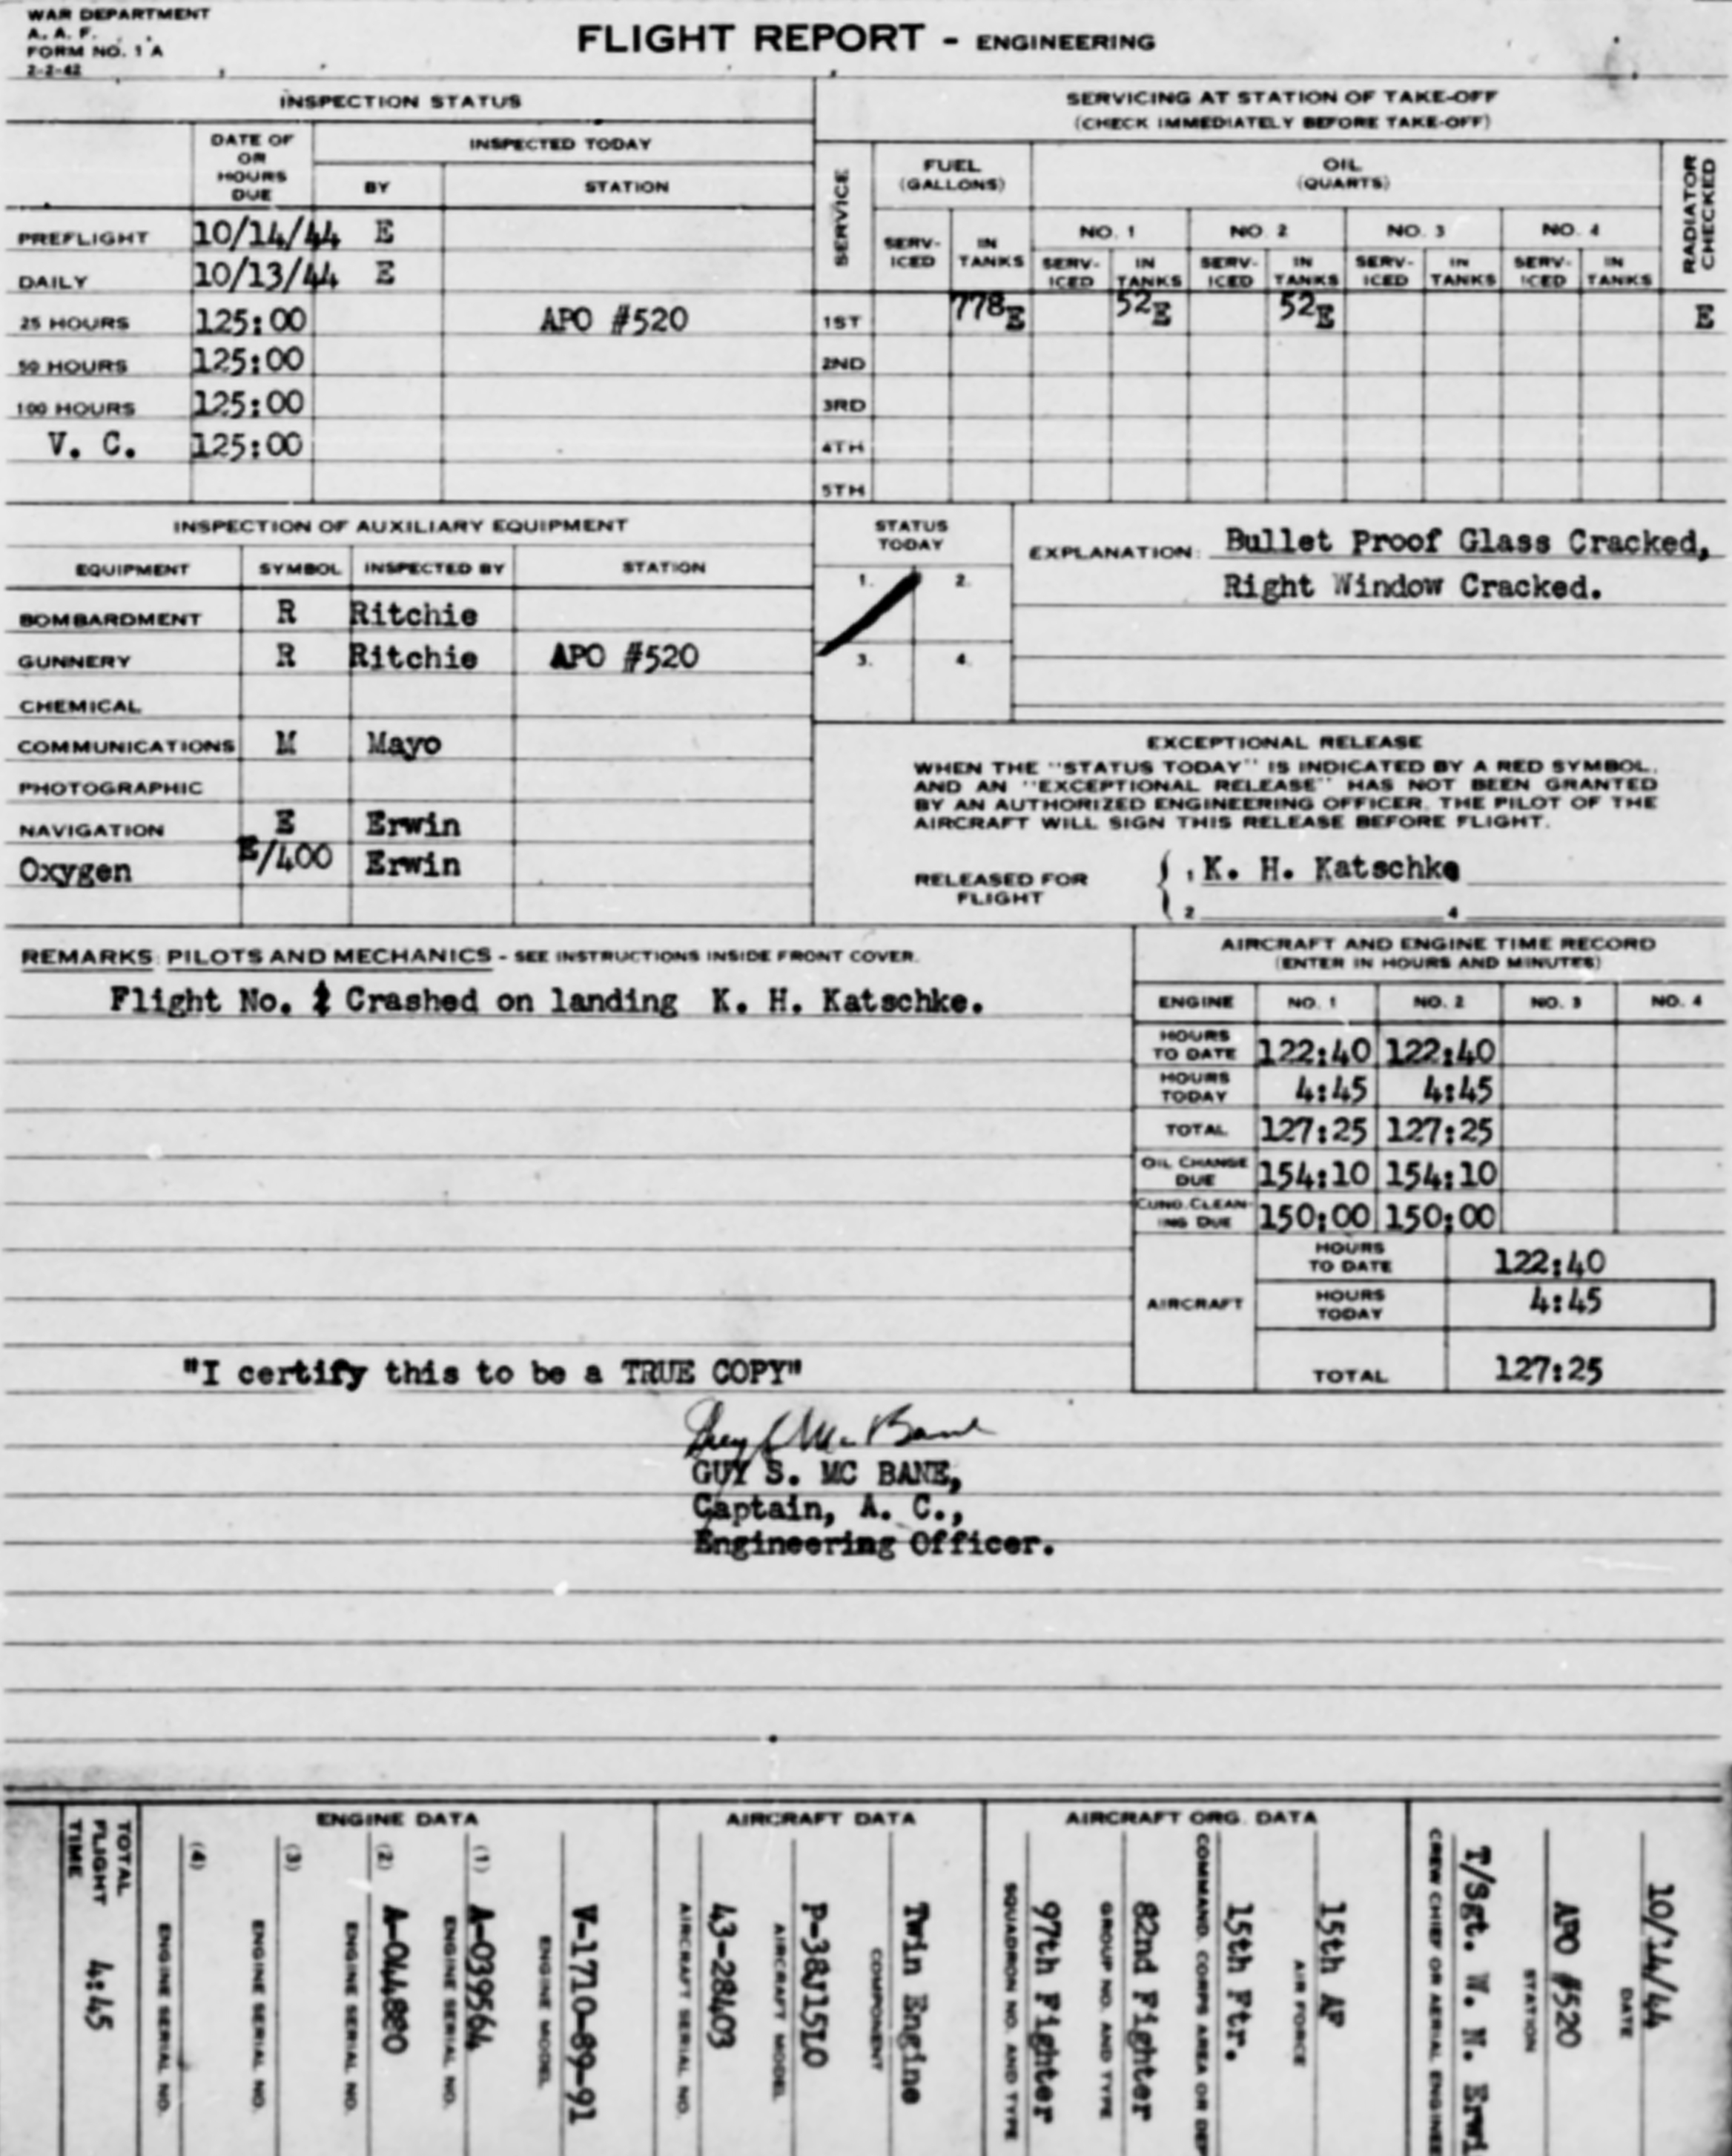 WAR DEPARTMENT
A. A. F.
FORM NO. 1 A
2-2-42
FLIGHT REPORT - ENGINEERING
INSPECTION STATUS
DATE OF OR HOURS DUE
INSPECTED TODAY
BY
STATION
PREFLIGHT 10/14/44 E
DAILY 10/13/44 E
25 HOURS 125:00 APO #520
50 HOURS 125:00
100 HOURS 125:00
V. C. 125:00
SERVICING AT STATION OF TAKE-OFF
(CHECK IMMEDIATELY BEFORE TAKE-OFF)
SERVICE
FUEL (GALLONS)
OIL (QUARTS)
RADIATOR CHECKED
NO. 1 NO. 2 NO. 3 NO. 4
SERV-ICED IN TANKS SERV-ICED IN TANKS SERV-ICED IN TANKS SERV-ICED IN TANKS SERV-ICED IN TANKS
1ST 778E 52E 52E E
2ND
3RD
4TH
5TH
INSPECTION OF AUXILIARY EQUIPMENT
EQUIPMENT SYMBOL INSPECTED BY STATION
BOMBARDMENT R Ritchie
GUNNERY R Ritchie APO #520
CHEMICAL
COMMUNICATIONS M Mayo
PHOTOGRAPHIC
NAVIGATION E Erwin
Oxygen E/400 Erwin
STATUS TODAY
1. 2.
3. 4.
EXPLANATION: Bullet Proof Glass Cracked,
Right Window Cracked.
EXCEPTIONAL RELEASE
WHEN THE "STATUS TODAY" IS INDICATED BY A RED SYMBOL,
AND AN "EXCEPTIONAL RELEASE" HAS NOT BEEN GRANTED
BY AN AUTHORIZED ENGINEERING OFFICER, THE PILOT OF THE
AIRCRAFT WILL SIGN THIS RELEASE BEFORE FLIGHT.
RELEASED FOR FLIGHT
1 K. H. Katschke
2 4
REMARKS: PILOTS AND MECHANICS - SEE INSTRUCTIONS INSIDE FRONT COVER.
Flight No. Crashed on landing K. H. Katschke.
AIRCRAFT AND ENGINE TIME RECORD
(ENTER IN HOURS AND MINUTES)
ENGINE NO. 1 NO. 2 NO. 3 NO. 4
HOURS TO DATE 122:40 122:40
HOURS TODAY 4:45 4:45
TOTAL 127:25 127:25
OIL CHANGE DUE 154:10 154:10
CUNO. CLEAN-ING DUE 150:00 150:00
AIRCRAFT
HOURS TO DATE 122:40
HOURS TODAY 4:45
TOTAL 127:25
"I certify this to be a TRUE COPY"
Guy S. Mc Bane
GUY S. MC BANE,
Captain, A. C.,
Engineering Officer.
10/14/44
DATE
APO #520
STATION
T/Sgt. W. N. Erwi
CREW CHIEF OR AERIAL ENGINEE
AIRCRAFT ORG. DATA
15th AF
AIR FORCE
15th Ftr.
COMMAND, CORPS AREA OR DEP
82nd Fighter
GROUP NO. AND TYPE
97th Fighter
SQUADRON NO. AND TYPE
AIRCRAFT DATA
Twin Engine
COMPONENT
P-38J15LO
AIRCRAFT MODEL
43-28403
AIRCRAFT SERIAL NO.
ENGINE DATA
V-1710-89-91
ENGINE MODEL
(1) A-039564
ENGINE SERIAL NO.
(2) A-044880
ENGINE SERIAL NO.
(3)
ENGINE SERIAL NO.
(4)
ENGINE SERIAL NO.
TOTAL FLIGHT TIME 4:45